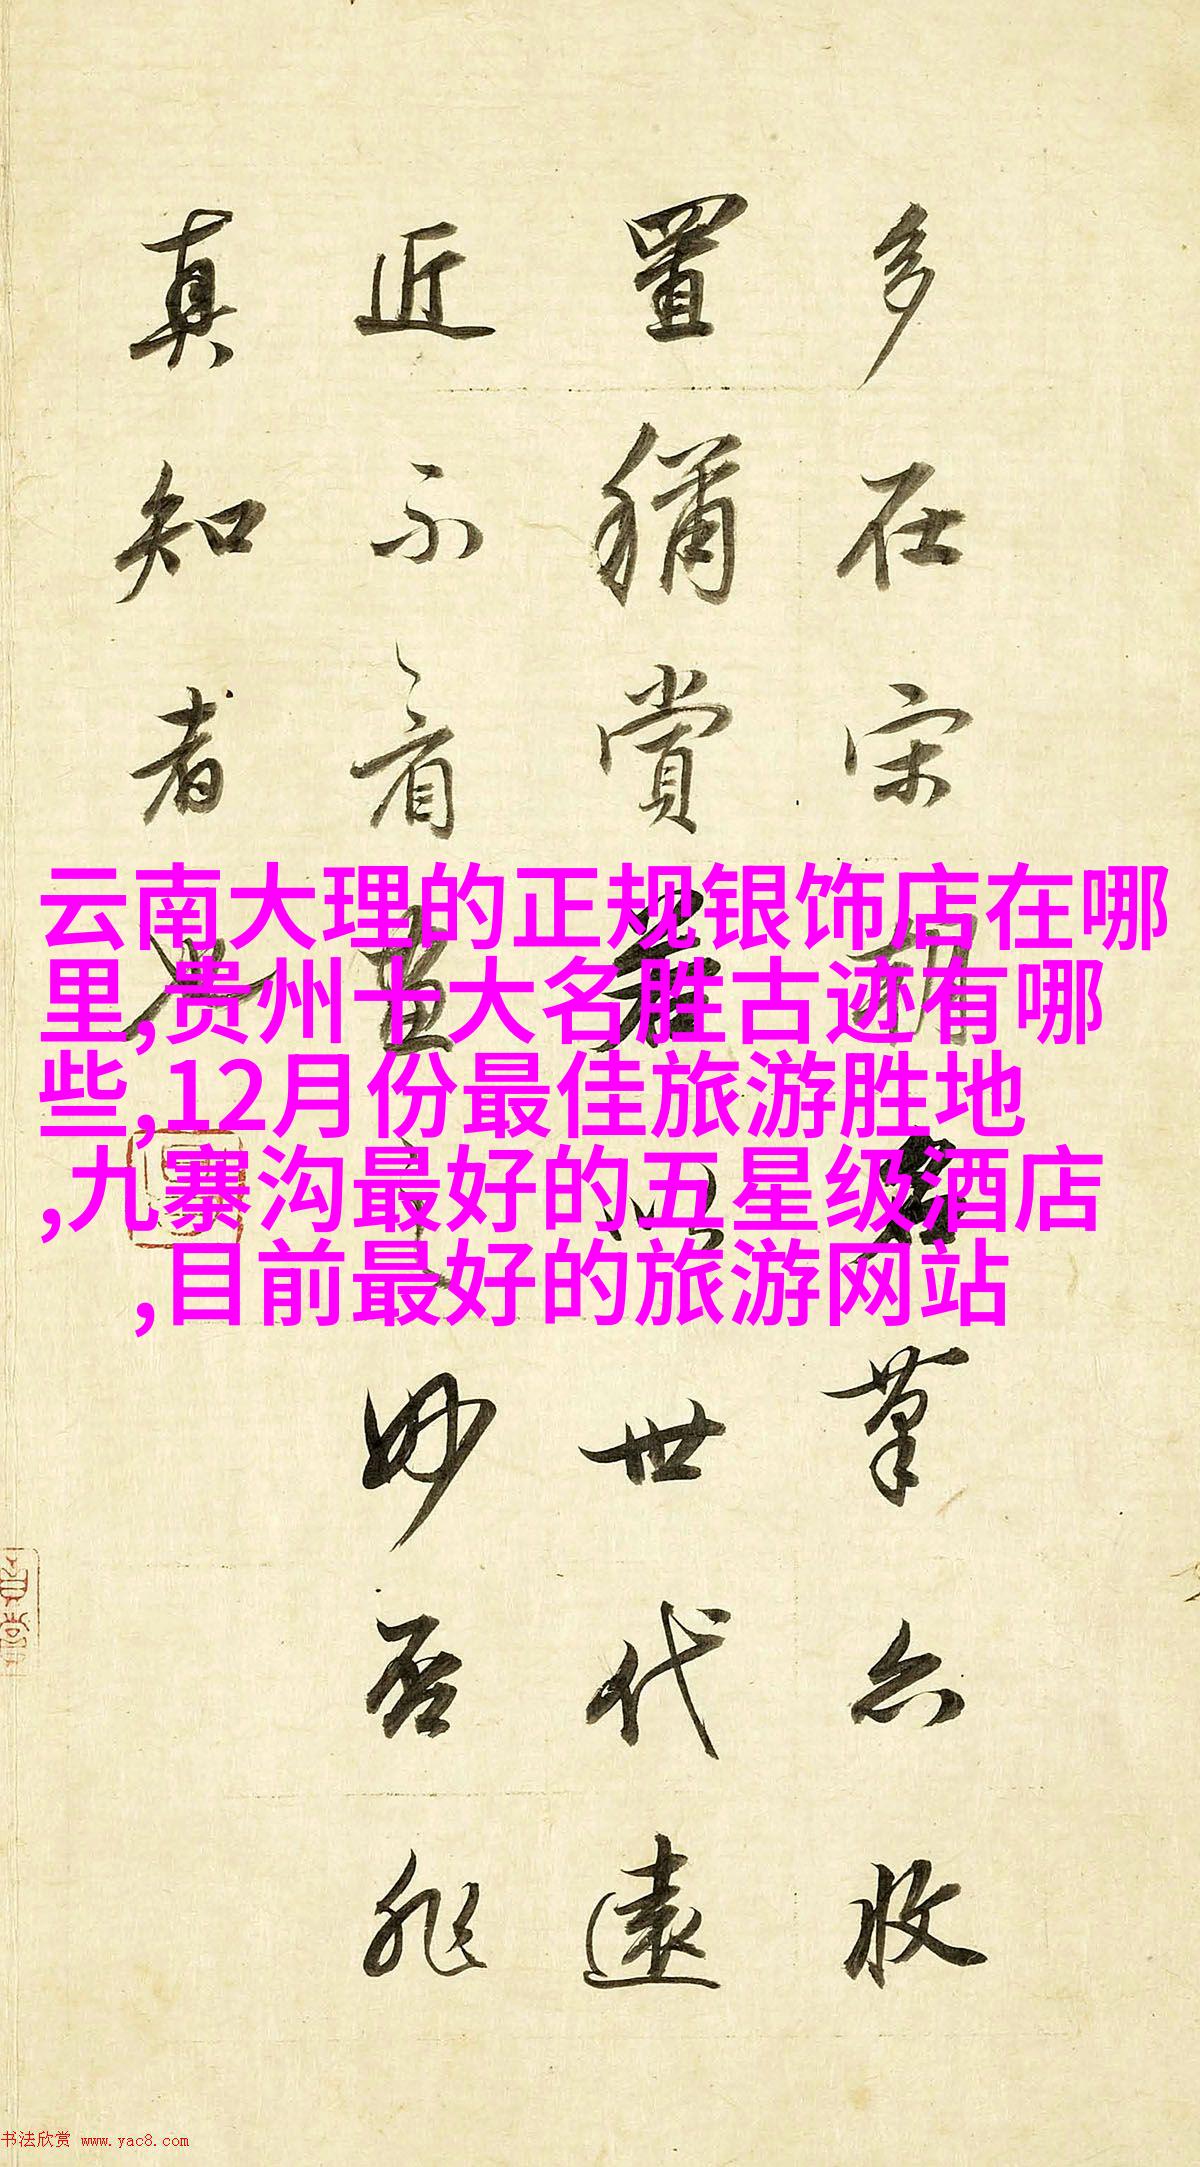 多在宋筆亦收
置稱賞若以世代遠
近不看畫之妙否非
真知者也
云南大理的正规银饰店在哪
里,贵州十大名胜古迹有哪
些,12月份最佳旅游胜地
,九寨沟最好的五星级酒店
,目前最好的旅游网站
书法欣赏 www.yac8.com